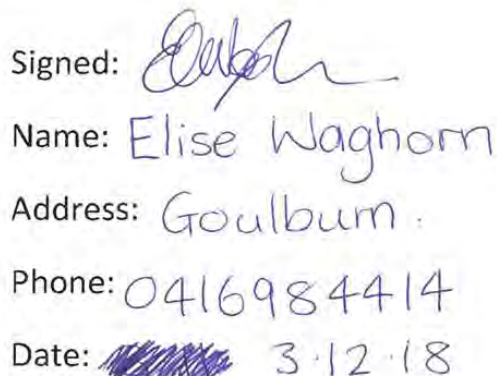 Signed:
Name: Elise Waghorn
Address: Goulburn.
Phone: 0416984414
Date: 3.12.18